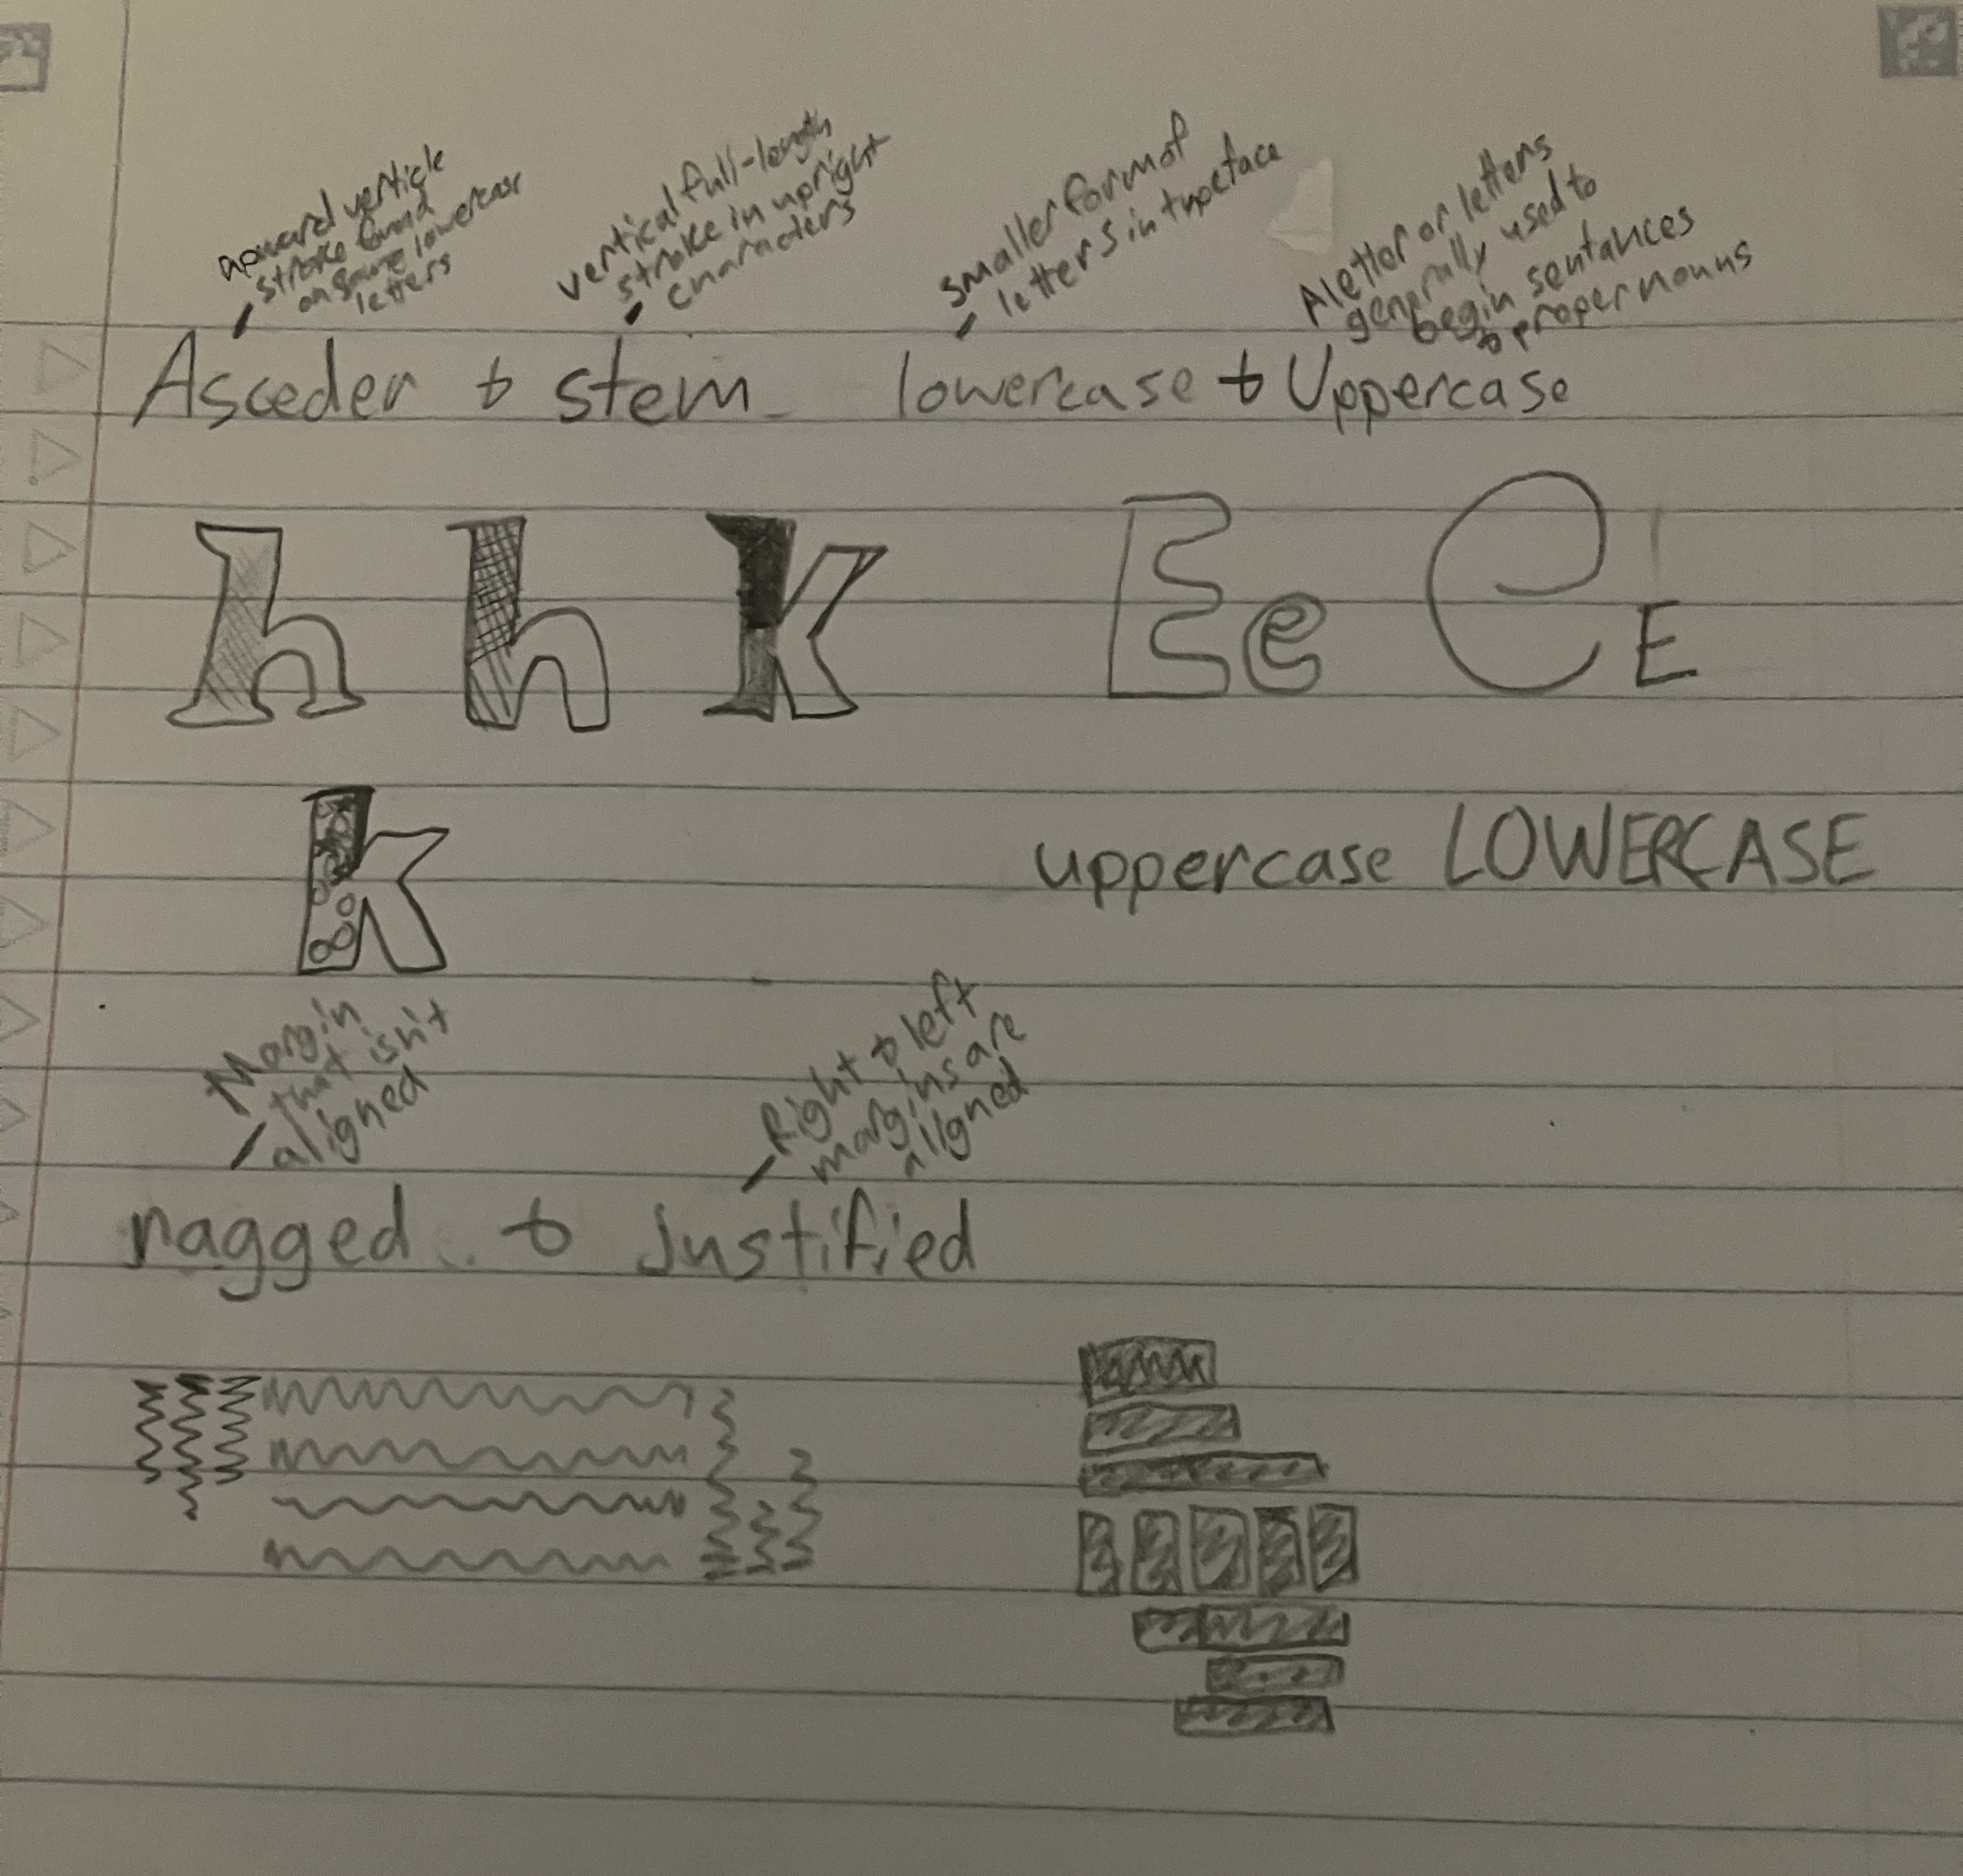 upward verticle
stroke found
on some lowercase
letters
vertical full-length
stroke in upright
characters
smaller form of
letters in typeface
A letter or letters
generally used to
begin sentances
& proper nouns
Asceder & stem
lowercase & Uppercase
h h k
E e e E
k
uppercase LOWERCASE
Margin
that isn't
aligned
Right & left
margins are
aligned
ragged & Justified